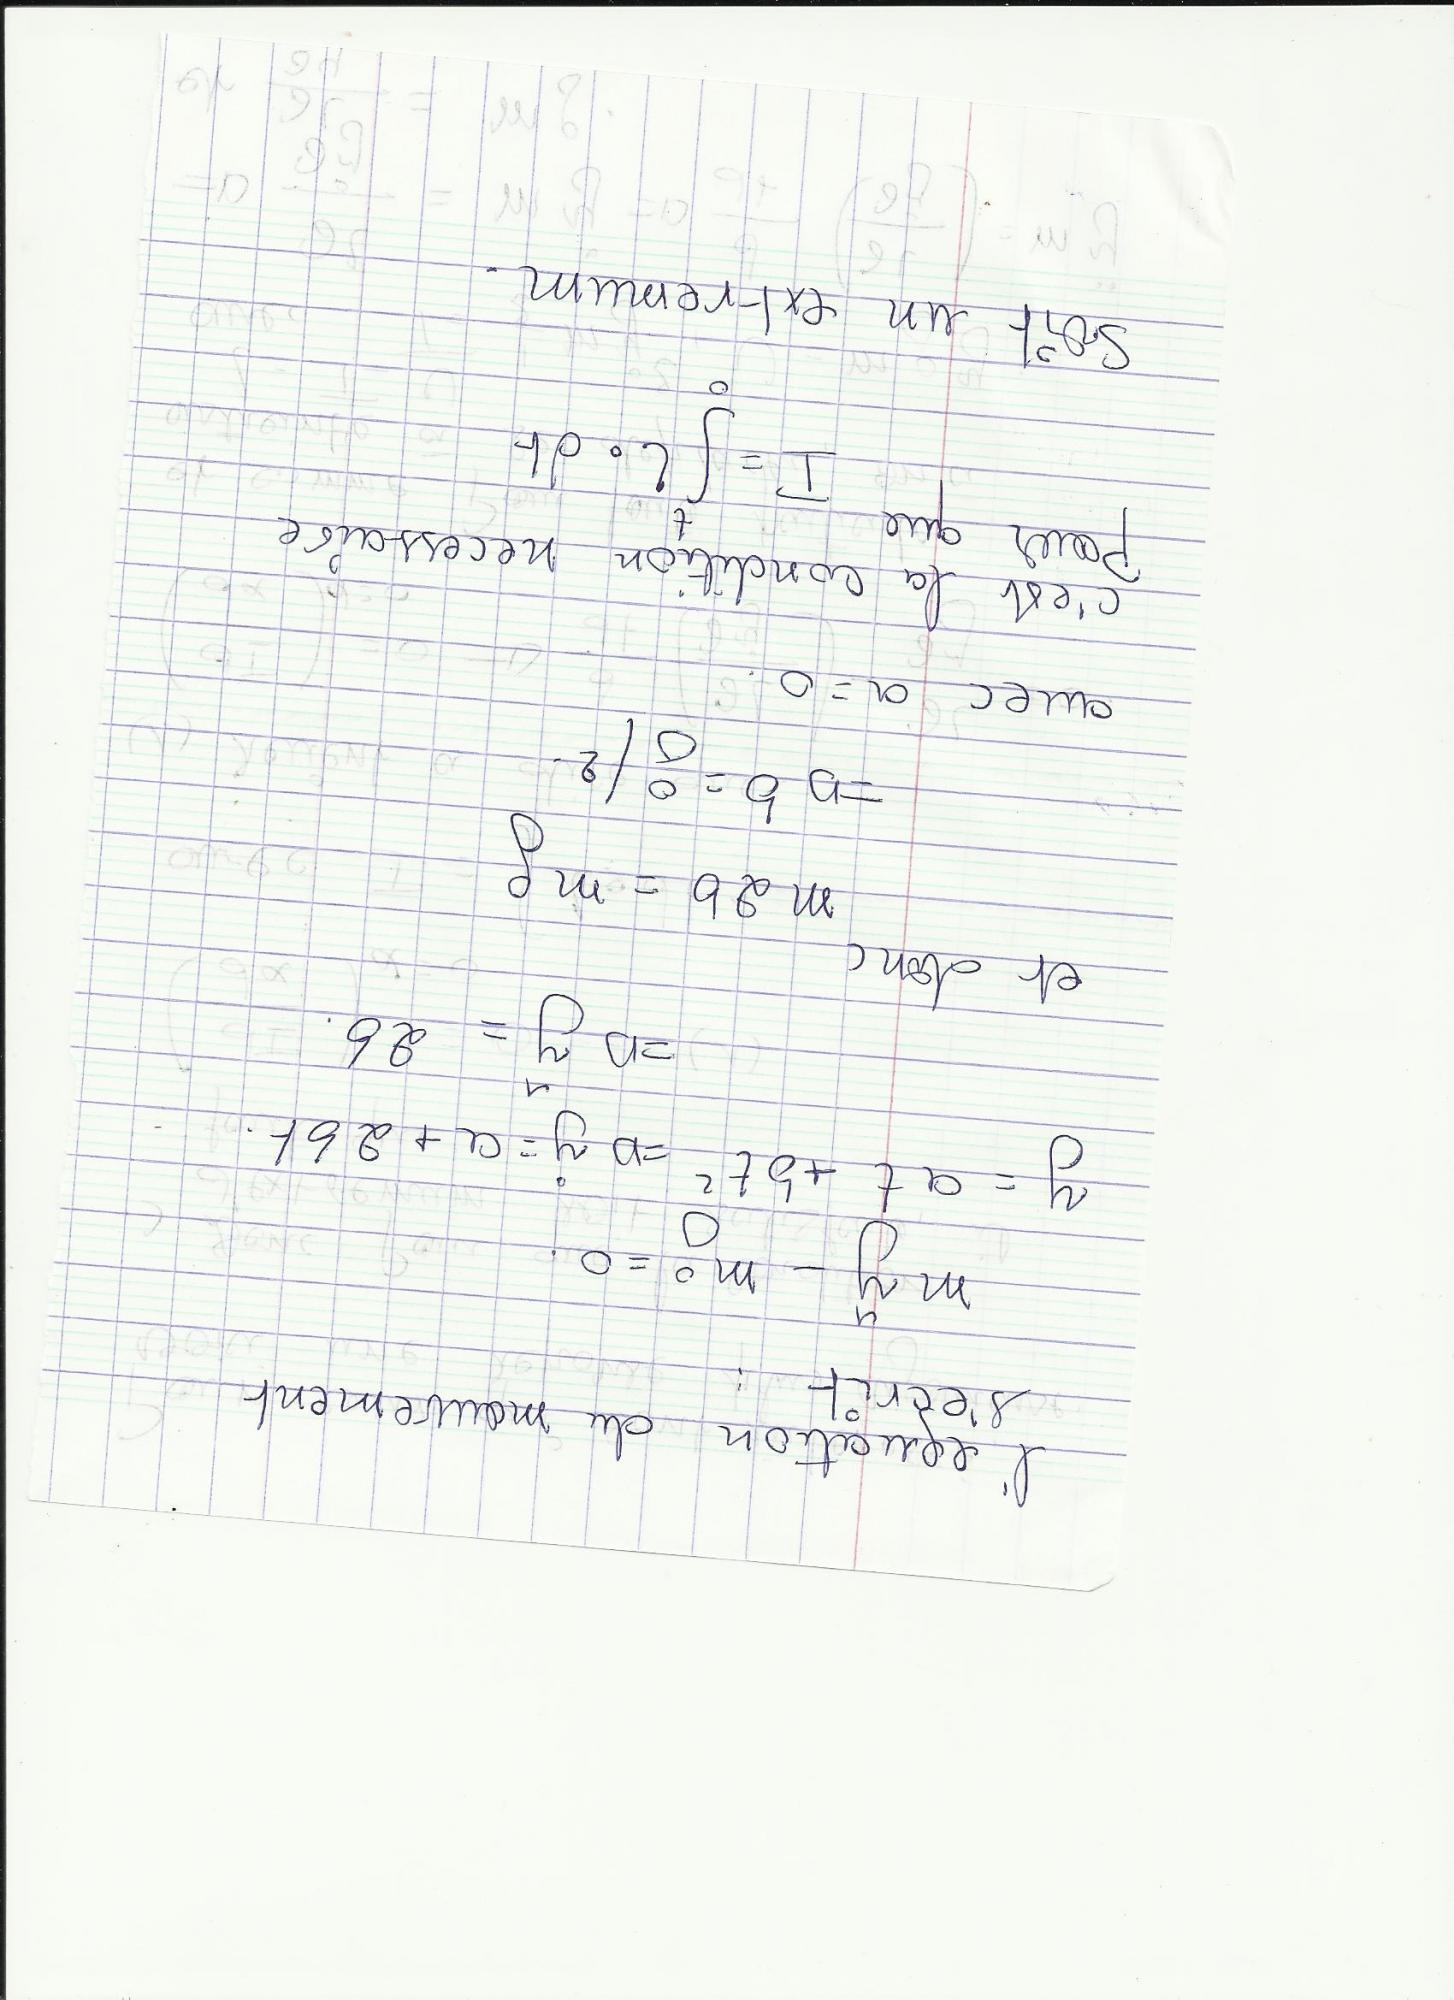 l'equation du mouvement
s'ecrit :
mÿ - mg = 0.
y = at + bt² => ẏ = a + 2bt.
=> ÿ = 2b.
et donc
m2b = mg
=> b = g/2.
avec a = 0.
c'est la condition necessaire
pour que I = ∫₀ᵗ L·dt
soit un extremum.